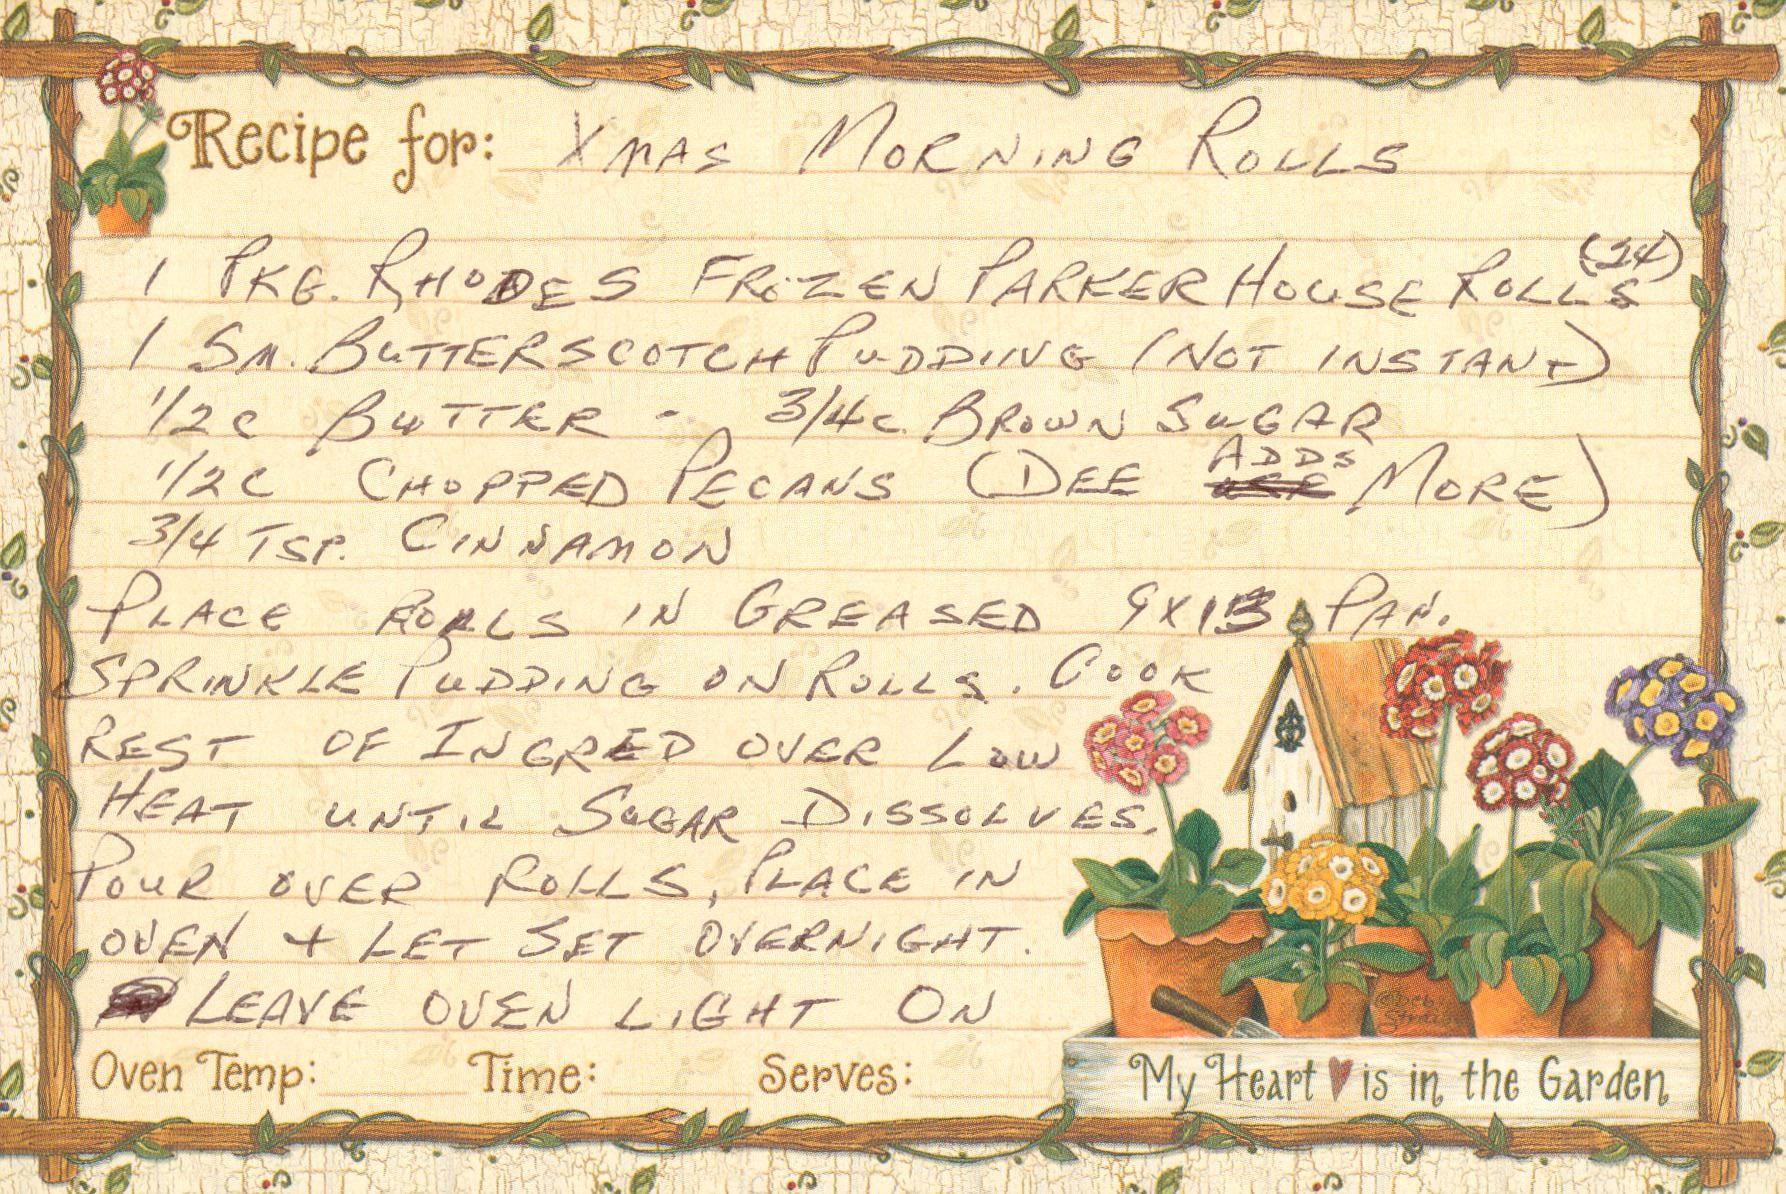 Recipe for: XMAS MORNING ROLLS
1 PKG. RHODES FROZEN PARKER HOUSE ROLLS (24)
1 SM. BUTTERSCOTCH PUDDIING (NOT INSTANT)
1/2 C BUTTER - 3/4 C. BROWN SUGAR
1/2 C CHOPPED PECANS (DEE ADDS MORE)
3/4 TSP. CINNAMON
PLACE ROLLS IN GREASED 9X13 PAN.
SPRINKLE PUDDING ON ROLLS. COOK
REST OF INGRED OVER LOW
HEAT UNTIL SUGAR DISSOLVES.
POUR OVER ROLLS, PLACE IN
OVEN + LET SET OVERNIGHT.
LEAVE OVEN LIGHT ON
Oven Temp: Time: Serves:
©Deb Strain
My Heart is in the Garden